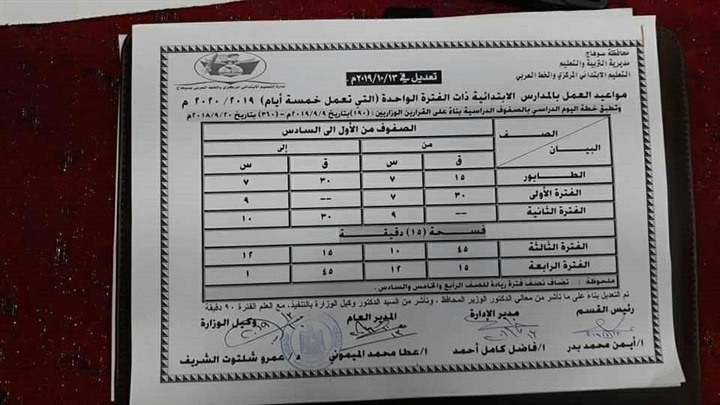 محافظة سوهاج
مديرية التربية والتعليم
التعليم الابتدائي المركزي والخط العربي
تعديل في ٢٠١٩/١٠/١٣م
مواعيد العمل بالمدارس الابتدائية ذات الفترة الواحدة (التي تعمل خمسة أيام) ٢٠١٩ / ٢٠٢٠ م
وتطبق خطة اليوم الدراسي بالصفوف الدراسية بناءً على القرارين الوزاريين : (١٩٠) بتاريخ ٢٠١٩/٩/٩م – (٣٦٠) بتاريخ ٢٠١٨/٩/٢٠م
الصف
البيان
الصفوف من الأول الى السادس
من إلى
ق س ق س
الطابور ١٥ ٧ ٣٠ ٧
الفترة الأولى ٣٠ ٧ -- ٩
الفترة الثانية -- ٩ ٣٠ ١٠
فسحة (١٥) دقيقة
الفترة الثالثة ٤٥ ١٠ ١٥ ١٢
الفترة الرابعة ١٥ ١٢ ٤٥ ١
ملحوظة : تضاف نصف فترة ريادة للصف الرابع والخامس والسادس.
تم التعديل بناءً على ما تأشر من معالي الدكتور الوزير المحافظ ، وتأشر من السيد الدكتور وكيل الوزارة بالتنفيذ، مع العلم الفترة ٩٠ دقيقة
رئيس القسم مدير الإدارة المدير العام وكيل الوزارة
ا/أيمن محمد بدر ا/فاضل كامل أحمد ا/عطا محمد الميموني د/ عمرو شلتوت الشريف